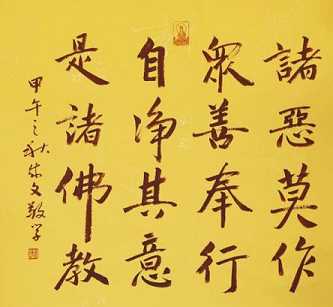 諸惡莫作
眾善奉行
自净其意
是諸佛教
甲午之秋朱文敬書